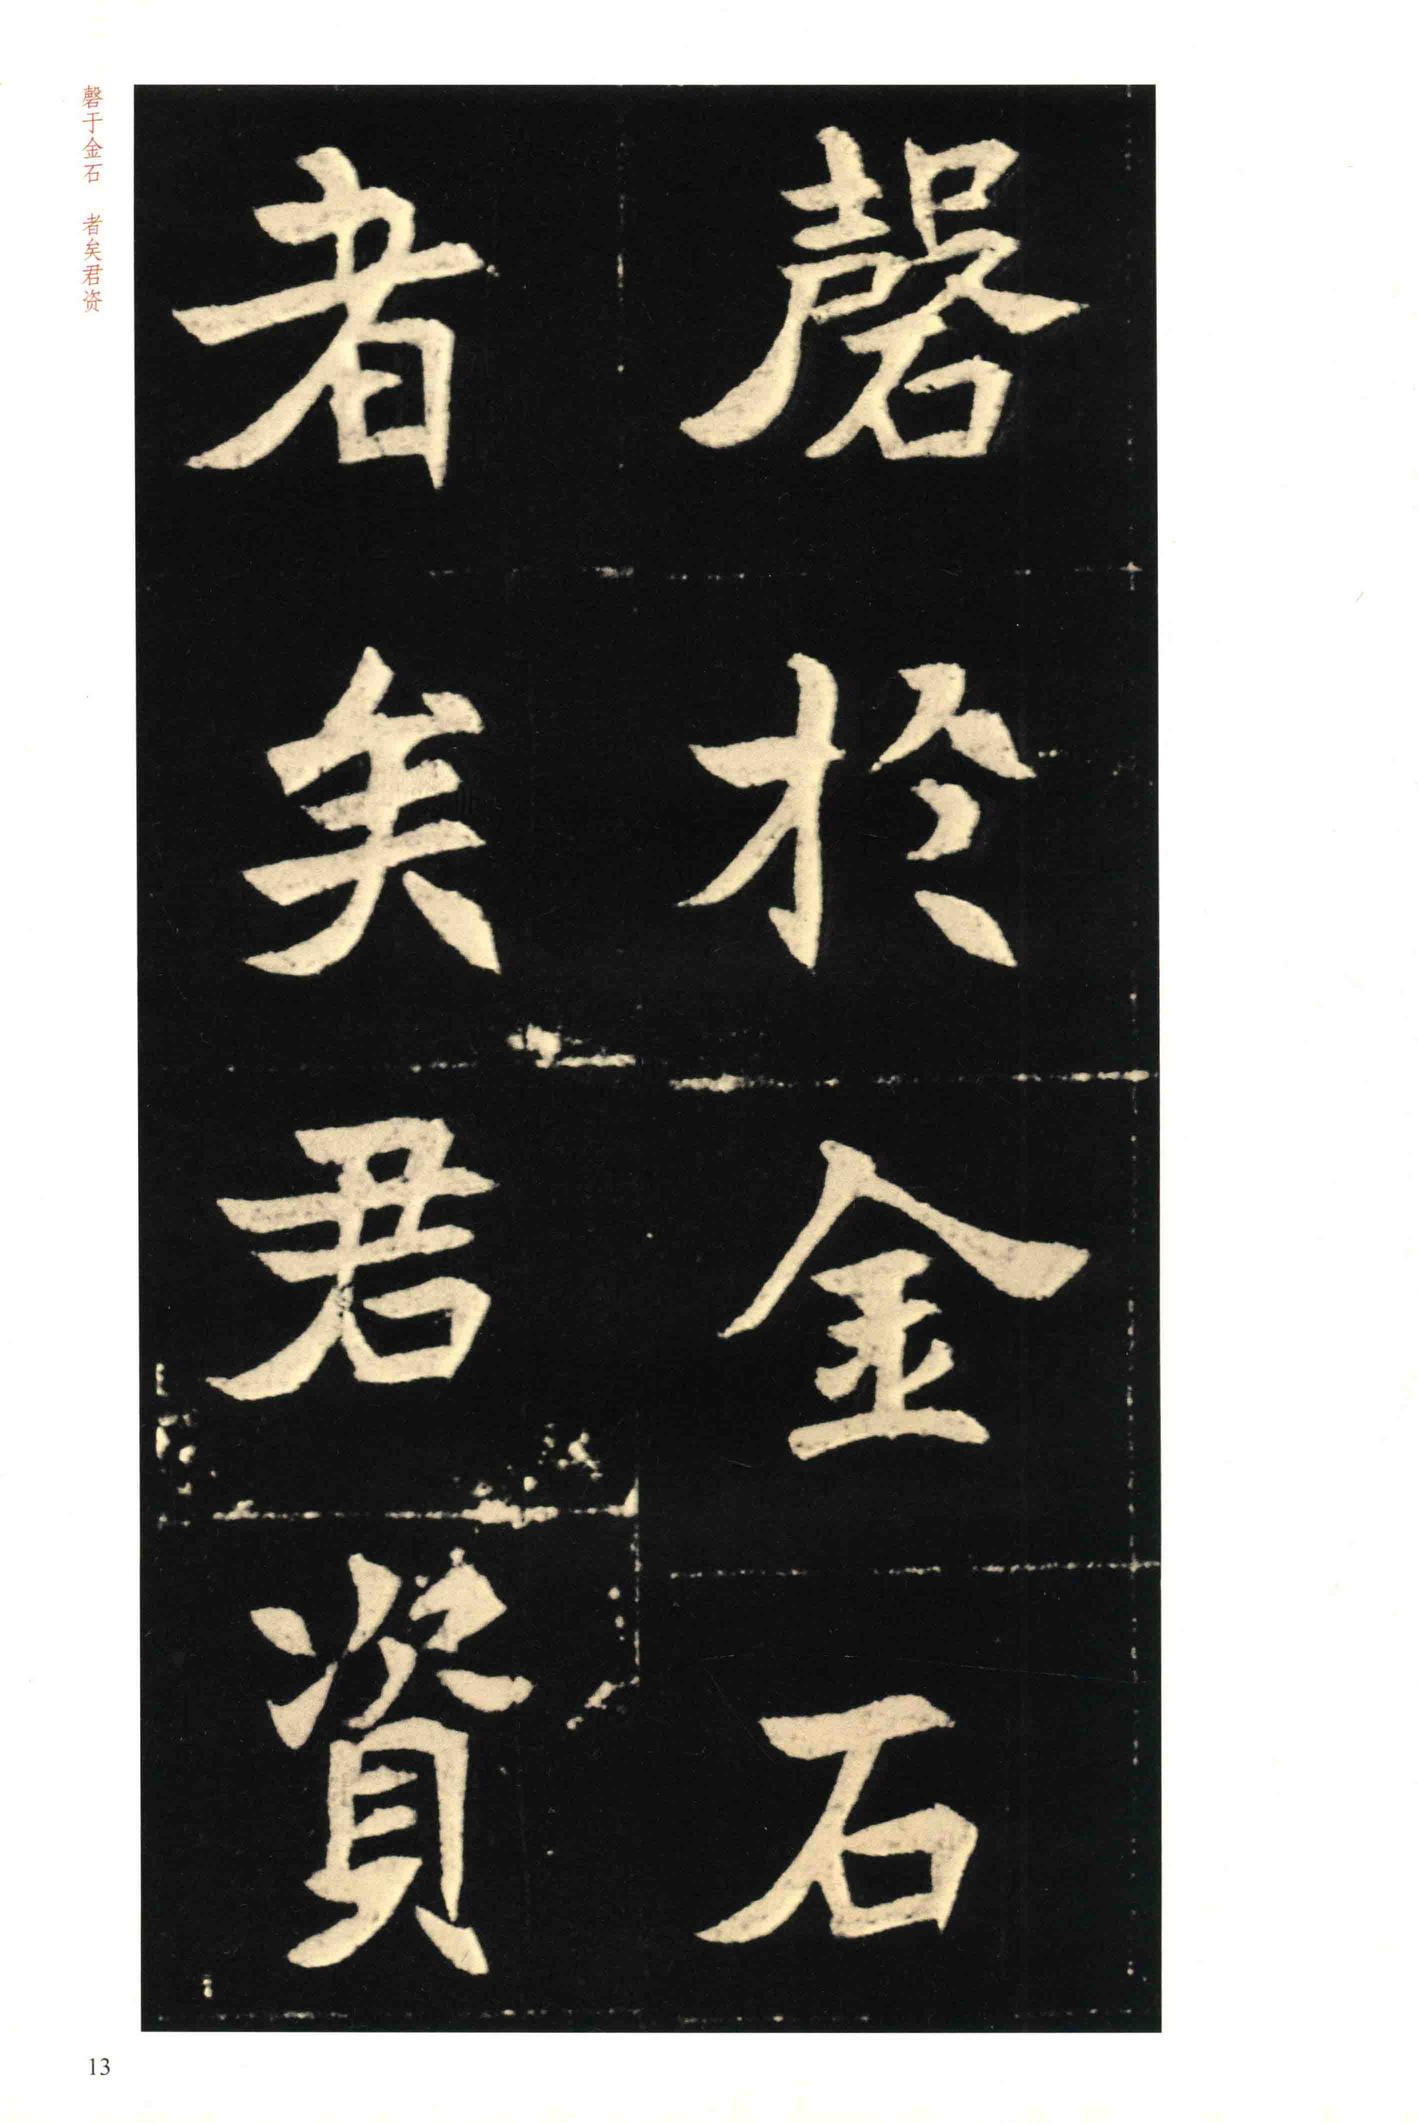 磬於金石
者矣君資
磬于金石 者矣君资
13